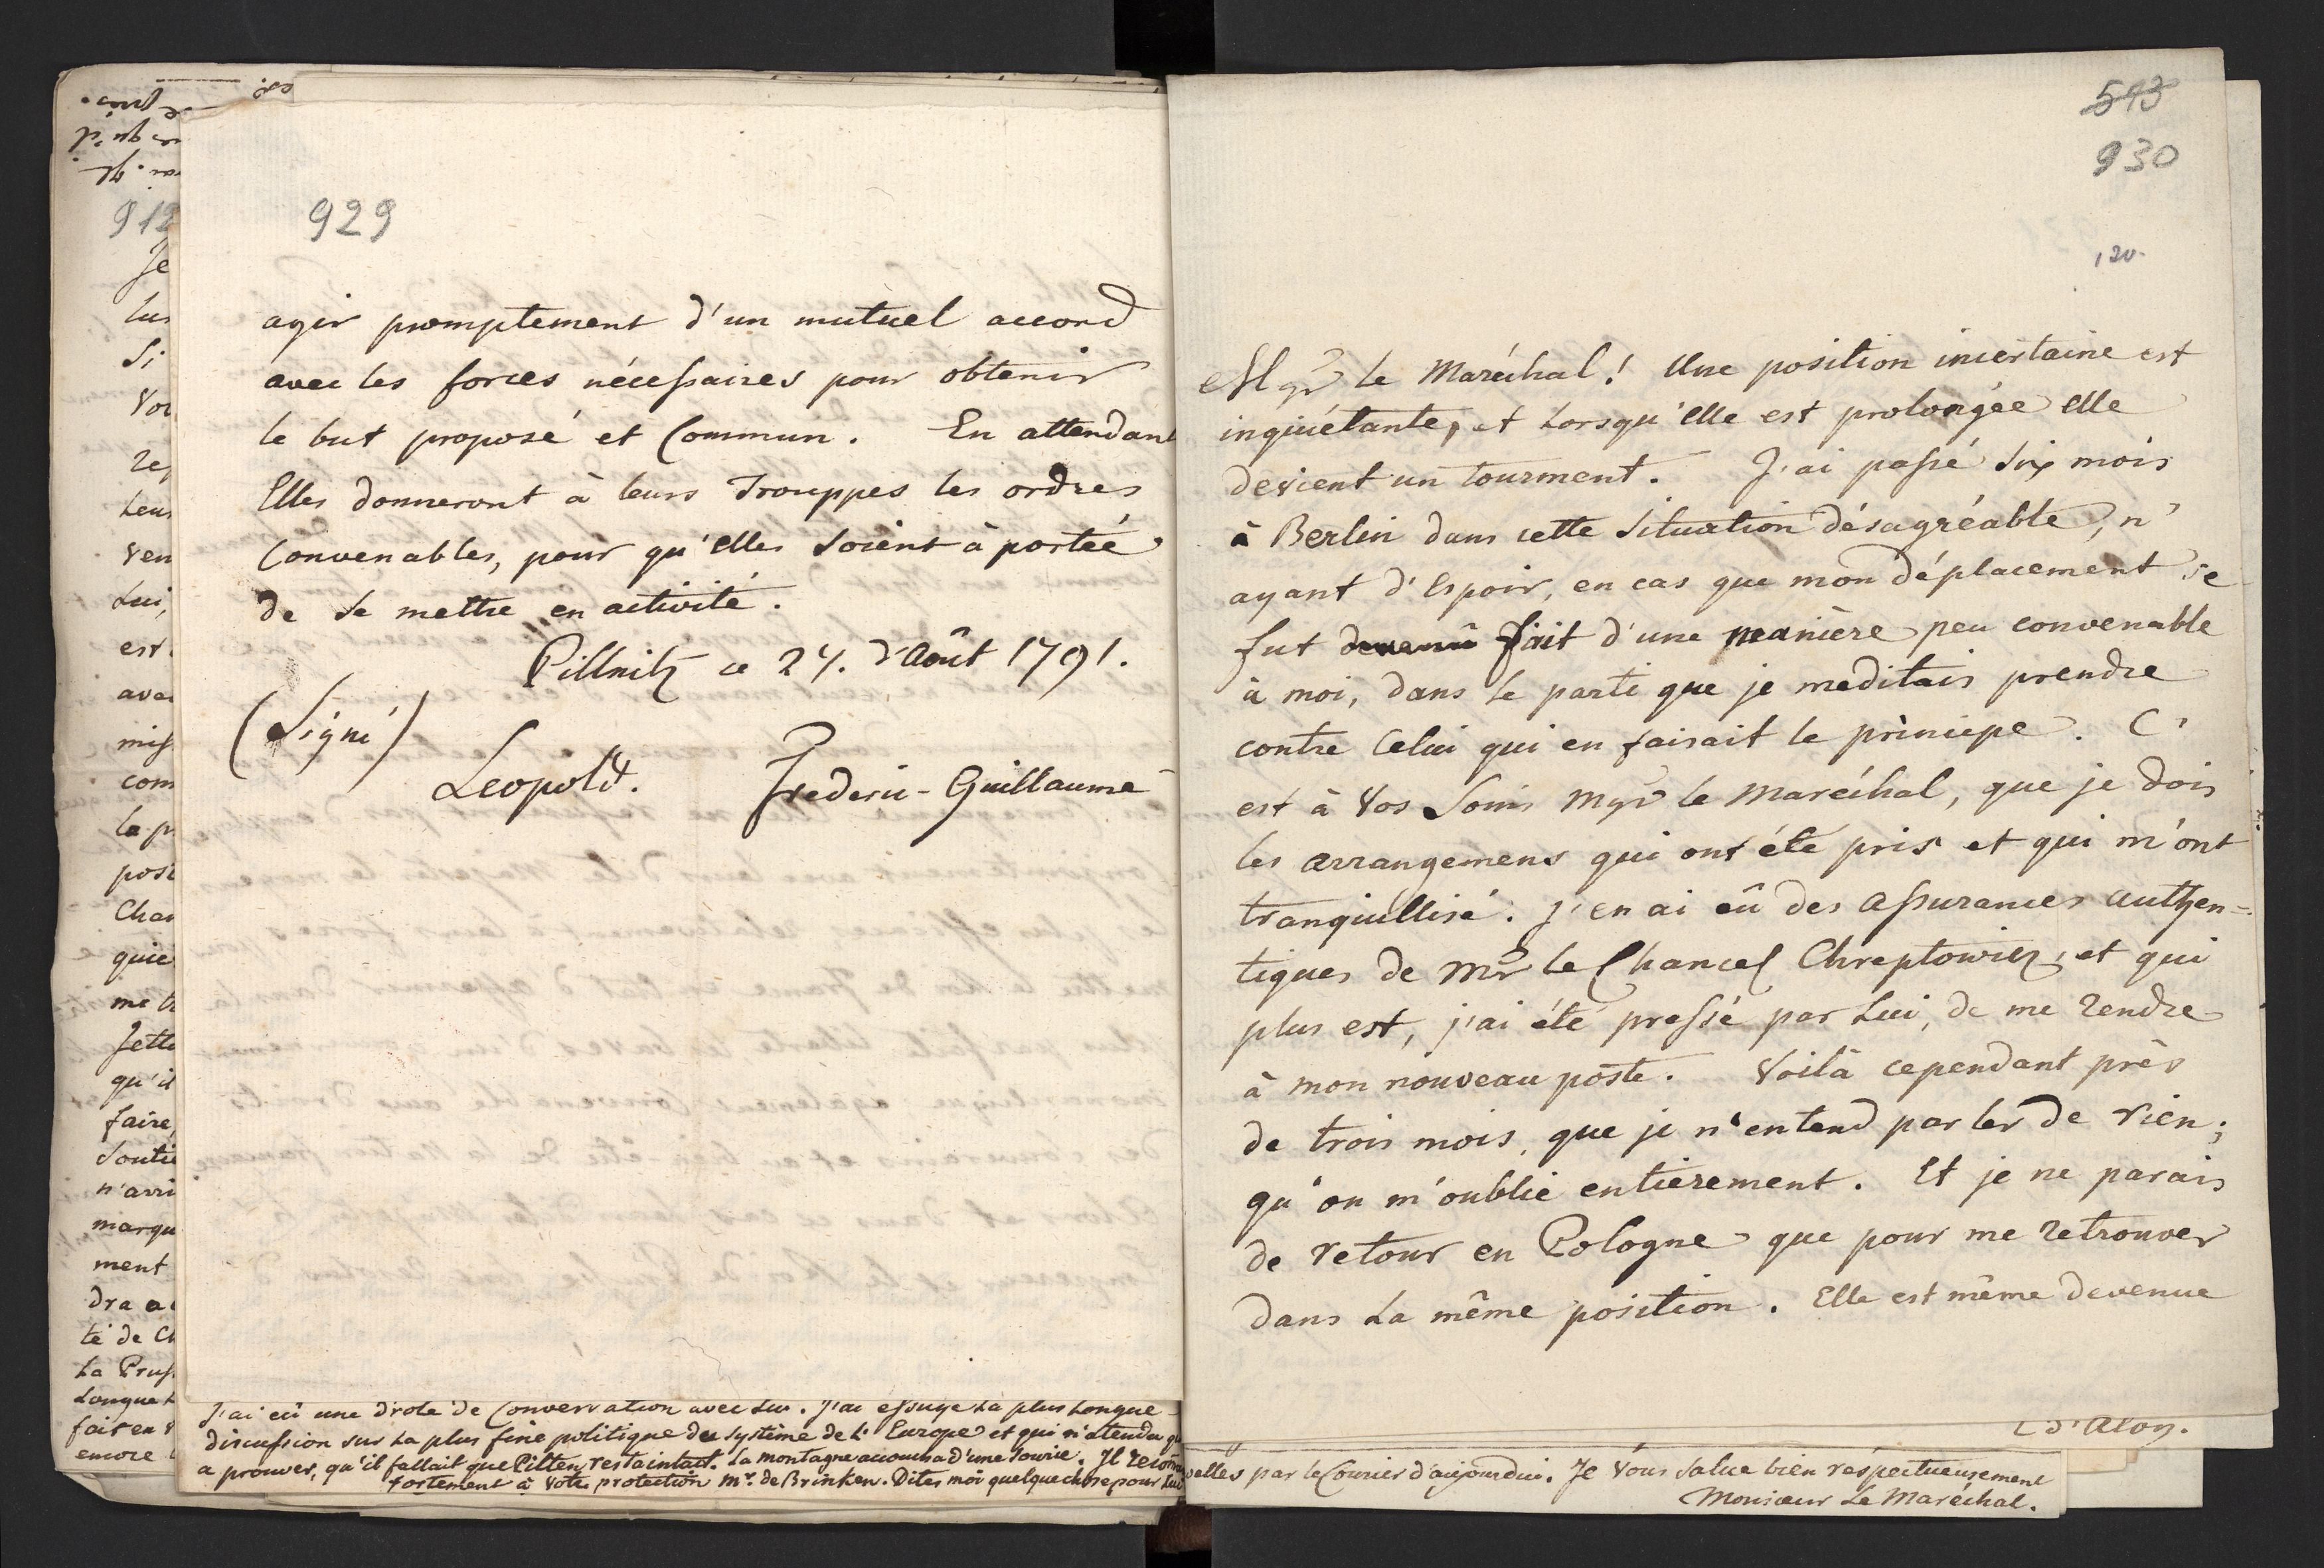 929
agir promptement d'un mutuel accord
avec les forces nécessaires pour obtenir
le but proposé et Commun. En attendant
Elles donneront à leurs Trouppes les ordres
Convenables, pour qu'elles soient à portée
de se mettre en activité.
Pillnitz ce 27. d'Août 1791.
(Signé)
Leopold. Frederic-Guillaume
J'ai eû une drole de Conversation avec lui. J'ai essuyé la plus longue
discussion sur la plus fine politique du système de l'Europe et qui n'atendu
a prouver, qu'il fallait que Pilten restaintact. La montagne accoucha d'une Sourie. Il
fortement à Votre protection Mr. de Brinken. Dites moi quelque chose pour lui
912
Je
Si
ven
Lui,
est
com
la p
posi
Chan
me
qu'il
faire,
n'arri
marqu
ment
dra a
té de Ch
La Prus
Longue
fait en
encore
513
930
120.
Mgr le Maréchal! Une position incertaine est
inquiétante, et Lorsqu'elle est prolongée elle
devient un tourment. J'ai passé six mois
à Berlin dans cette Situation désagréable, n'
ayant d'espoir, en cas que mon déplacement se
fut devenû fait d'une manière peu convenable
à moi, dans le parti que je meditais prendre
contre Celui qui en faisait le principe. C'
est à Vos Soins Mgr le Maréchal, que je dois
les arrangemens qui ont été pris et qui m'ont
tranquillisé. J'en ai eû des assurances authen=
tiques de Mr le Chancel Chreptowicz, et qui
plus est, j'ai été pressé par Lui, de me rendre
à mon nouveau poste. Voilà cependant près
de trois mois, que je n'entend parler de rien;
qu'on m'oublie entièrement. Et je ne parais
de retour en Pologne que pour me retrouver
dans la même position. Elle est même devenue
d'Aloy.
velles par le Courier d'aujourdui. Je Vous Salue bien réspectueusement
Monsieur Le Maréchal.